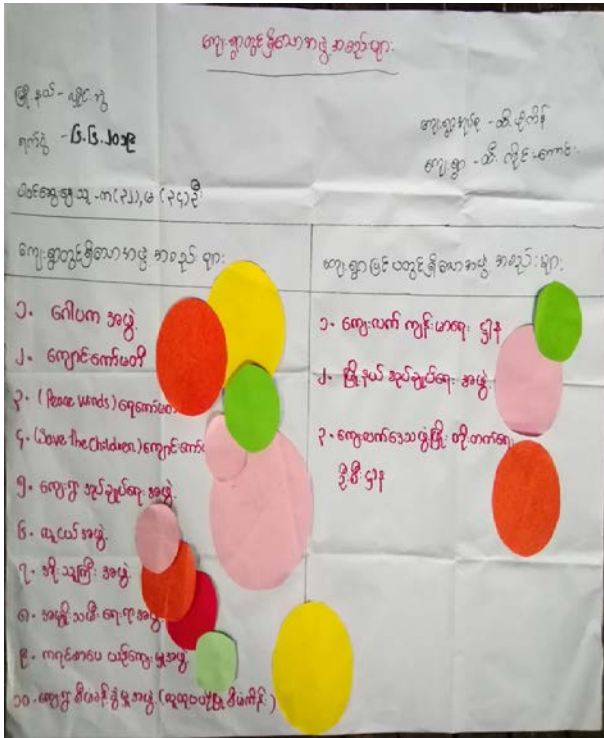 ကျေးရွာတွင်ရှိသောအဖွဲ့အစည်းများ
မြို့နယ် - လှိုင်းဘွဲ့
ရက်စွဲ - ၆.၆.၂၀၁၉
ကျေးရွာအုပ်စု - ထီ
ကျေးရွာ - ထီ
ပါဝင်ဆွေးနွေးသူ - က (၃၂), မ (၃၄) ဦး
ကျေးရွာတွင်ရှိသောအဖွဲ့အစည်းများ
၁. ဂေါပက အဖွဲ့
၂. ကျောင်းကော်မတီ
၃. (Peace winds) ရေကော်မတီ
၄. (Save the children) ကျောင်းကော်
၅. ကျေးရွာ အုပ်ချုပ်ရေး အဖွဲ့
၆. လူငယ် အဖွဲ့
၇. အဖွဲ့
၈. အမျိုးသမီးရေးရာအဖွဲ့
၉. ကရင်စာပေ ယဉ်ကျေးမှုအဖွဲ့
၁၀. ကျေးရွာစီမံခန့်ခွဲမှုအဖွဲ့ (လူထုဗဟိုပြုစီမံကိန်း)
ကျေးရွာပြင်ပတွင်ရှိသောအဖွဲ့အစည်းများ
၁. ကျေးလက် ကျန်းမာရေး ဌာန
၂. မြို့နယ် အုပ်ချုပ်ရေး အဖွဲ့
၃. ကျေးလက်ဒေသဖွံ့ဖြိုးတိုးတက်ရေး
ဦးစီးဌာန